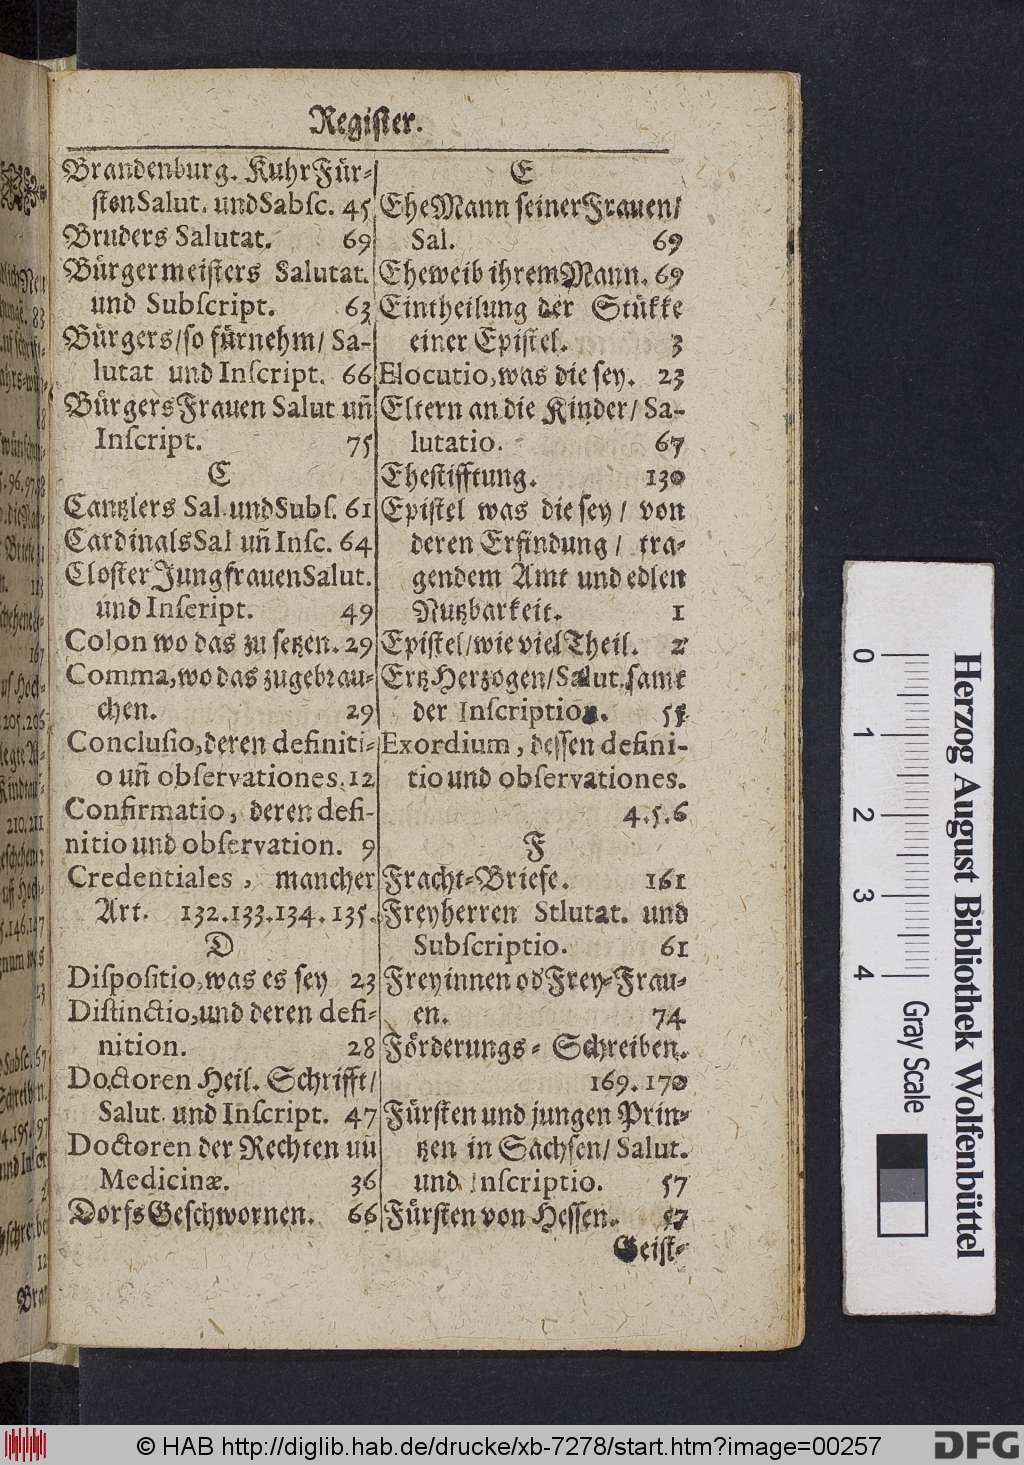 Register.
Brandenburg. KuhrFür-
stenSalut. undSabsc. 45
Bruders Salutat. 69
Bürgermeisters Salutat.
und Subscript. 63
Bürgers/so fürnehm/ Sa-
lutat und Inscript. 66
BürgersFrauen Salut uñ
Inscript. 75
C
Cantzlers Sal.undSubs. 61
CardinalsSal uñ Insc. 64
CloſterJungfrauenSalut.
und Inscript. 49
Colon wo das zu setzen. 29
Comma,wo das zugebrau-
chen. 29
Conclusio,deren definiti-
o uñ observationes.12
Confirmatio, deren defi-
nitio und observation. 9
Credentiales, mancher
Art. 132.133.134.135.
D
Dispositio,was es sey 23
Distinctio,und deren defi-
nition. 28
Doctoren Heil. Schrifft/
Salut. und Inscript. 47
Doctoren der Rechten uñ
Medicinæ. 36
DorfsGeschwornen. 66
E
EheMann seinerFrauen/
Sal. 69
Eheweib ihremMann. 69
Eintheilung der Stükke
einer Epistel. 3
Elocutio,was die sey. 23
Eltern an die Kinder/ Sa-
lutatio. 67
Ehestifftung. 130
Epistel was die sey / von
deren Erfindung / tra-
gendem Amt und edlen
Nutzbarkeit. 1
Epistel/wie viel Theil. 2
ErtzHerzogen/Salut.samt
der Inscription.
Exordium, dessen defini-
tio und observationes.
4.5.6
F
Fracht-Briefe. 161
Freyherren Stlutat. und
Subscriptio. 61
Freyinnen od Frey-Frau-
en. 74
Förderungs- Schreiben.
169.170
Fürsten und jungen Prin-
tzen in Sachsen/ Salut.
und Inscriptio. 57
Fürsten von Hessen. 57
Geist-
Herzog August Bibliothek Wolfenbüttel
0 1 2 3 4
Gray Scale
© HAB http://diglib.hab.de/drucke/xb-7278/start.htm?image=00257
DFG